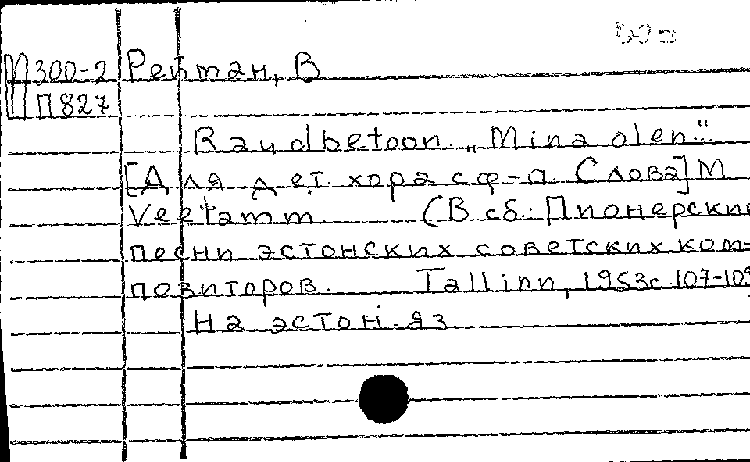 М300-2 Рейман, В
П827
Raudbetoon. „Mina olen."
[Для дет. хора с ф-п. Слова] М
Veetamm. (В сб: Пионерские
песни эстонских советских ком-
позиторов. Tallinn, 1953 с 107-109
На эстон. яз